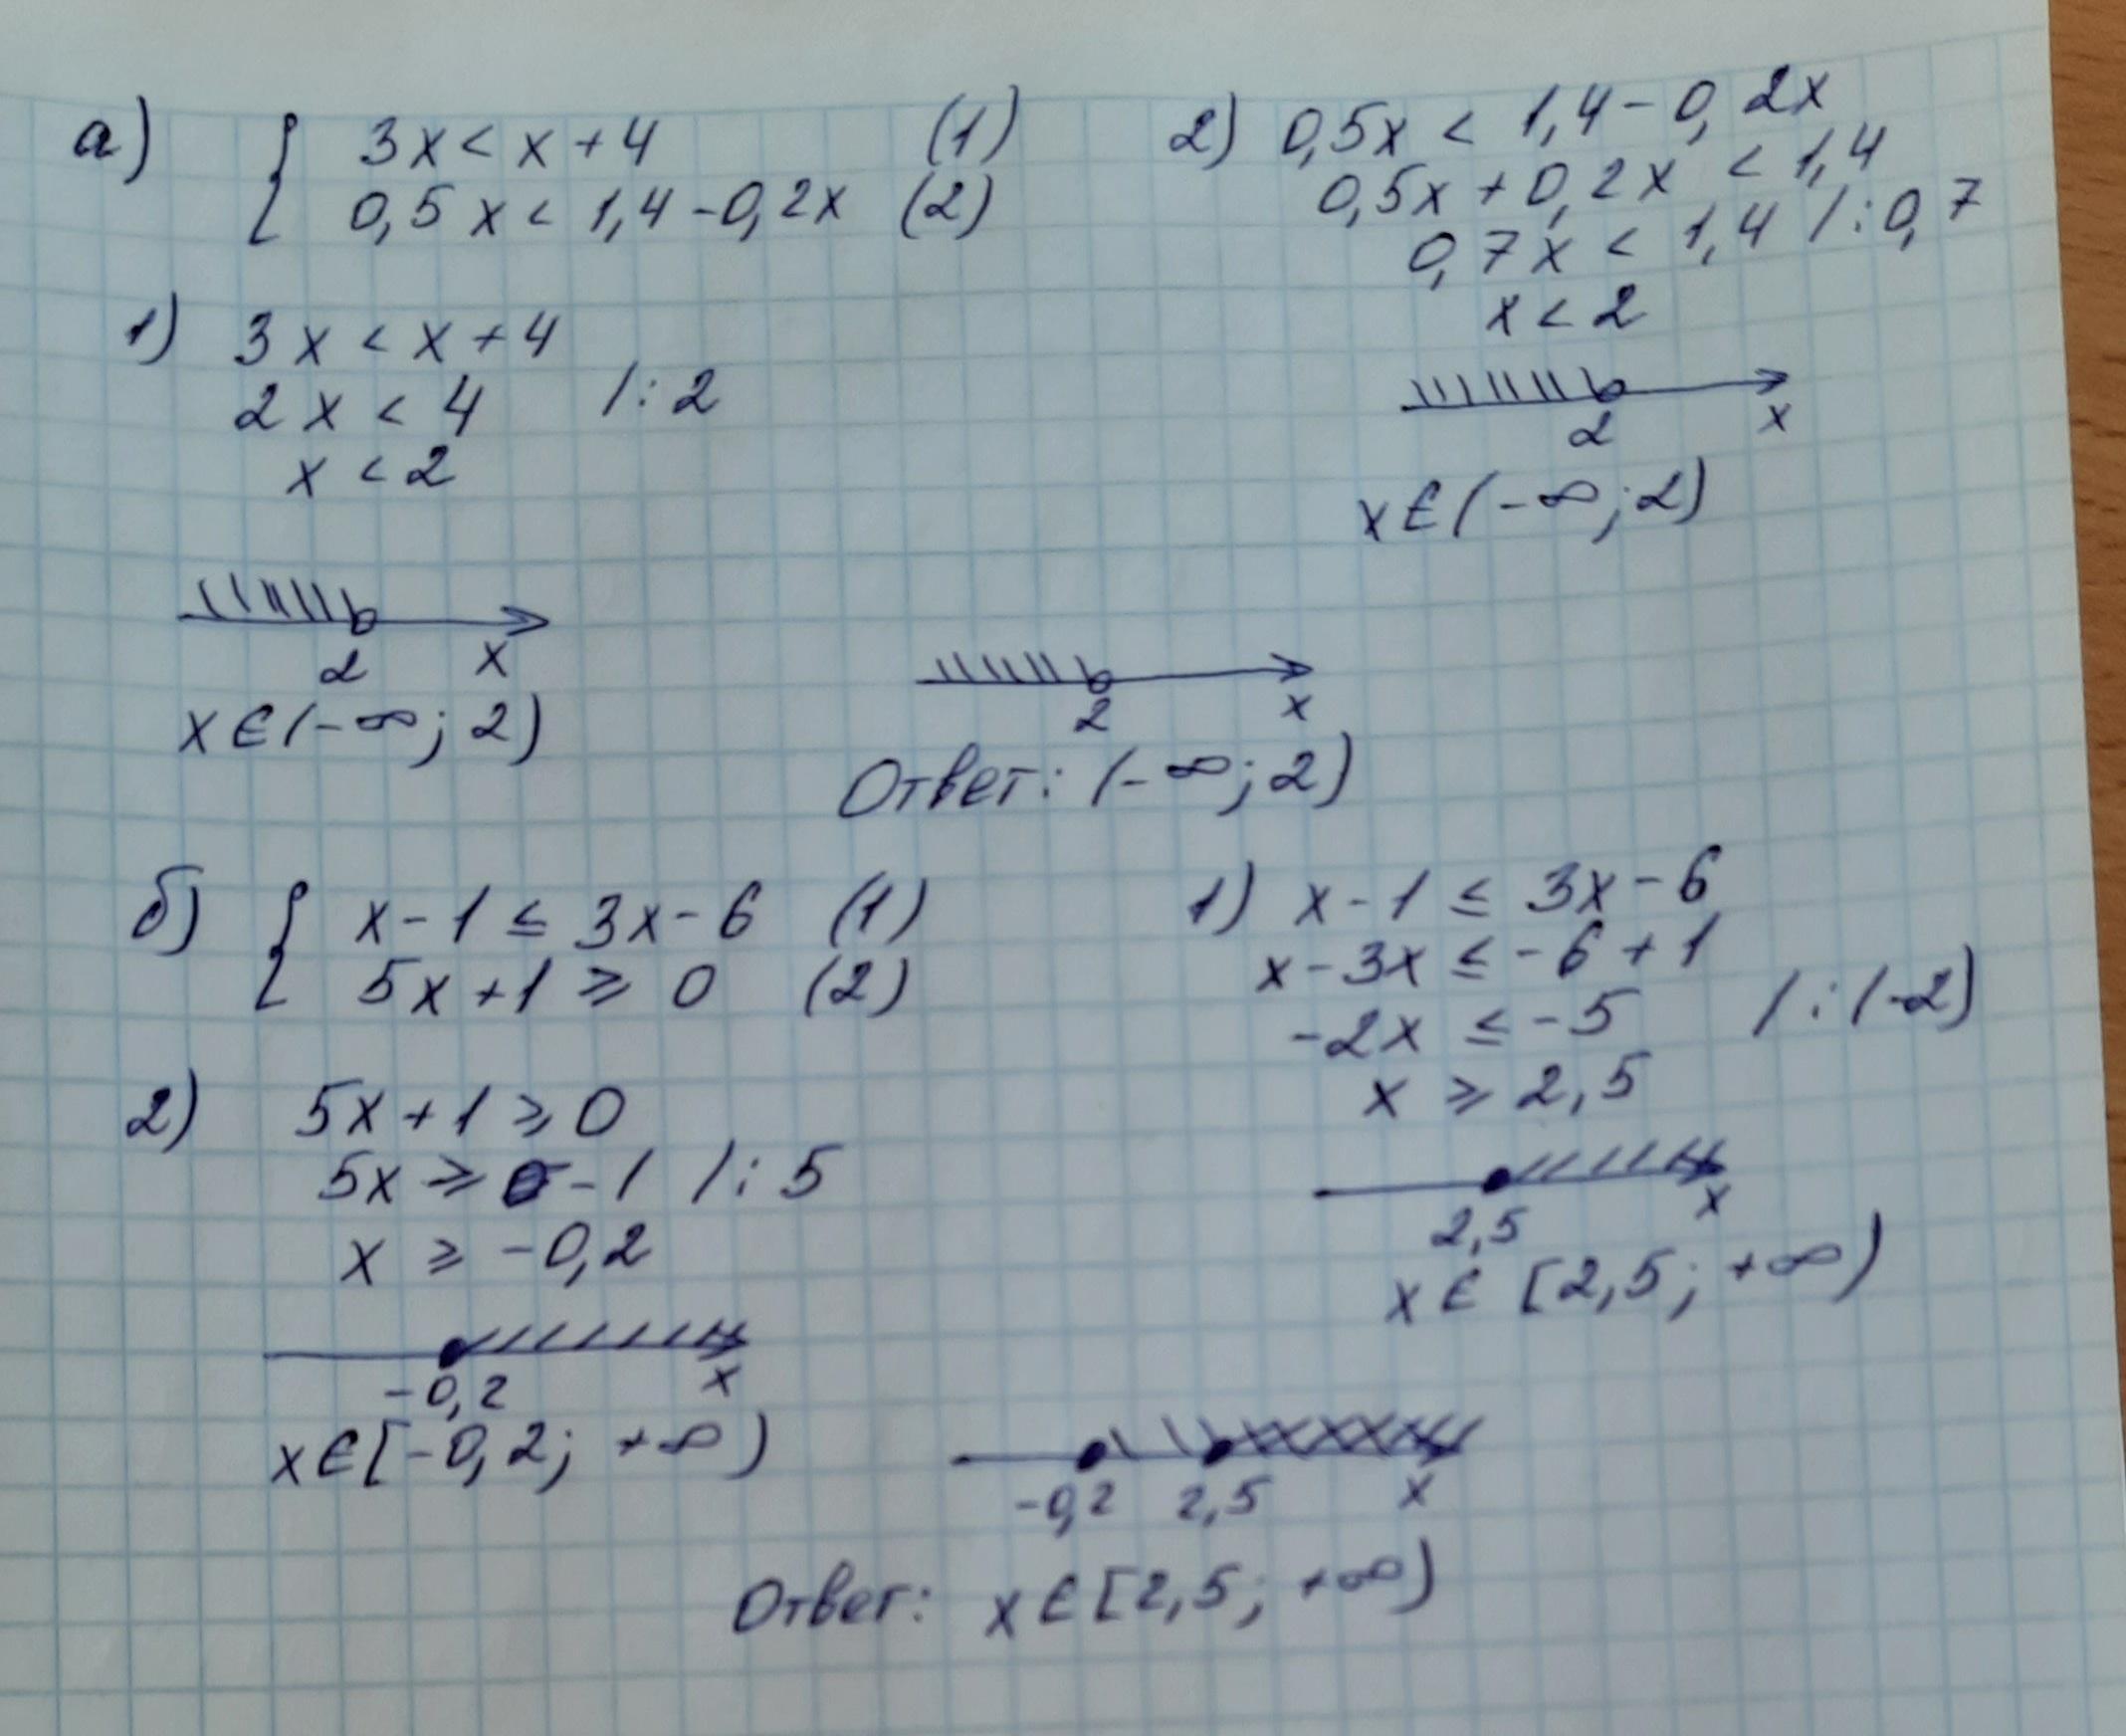 а) { 3x < x + 4 (1)
0,5x < 1,4 - 0,2x (2)
1) 3x < x + 4
2x < 4 /:2
x < 2
2 x
x∈(-∞; 2)
2) 0,5x < 1,4 - 0,2x
0,5x + 0,2x < 1,4
0,7x < 1,4 /:0,7
x < 2
2 x
x∈(-∞; 2)
2 x
Ответ: (-∞; 2)
б) { x - 1 ≤ 3x - 6 (1)
5x + 1 ≥ 0 (2)
1) x - 1 ≤ 3x - 6
x - 3x ≤ -6 + 1
-2x ≤ -5 /:(-2)
x ≥ 2,5
2,5 x
x∈[2,5; +∞)
2) 5x + 1 ≥ 0
5x ≥ -1 /:5
x ≥ -0,2
-0,2 x
x∈[-0,2; +∞)
-0,2 2,5 x
Ответ: x∈[2,5; +∞)